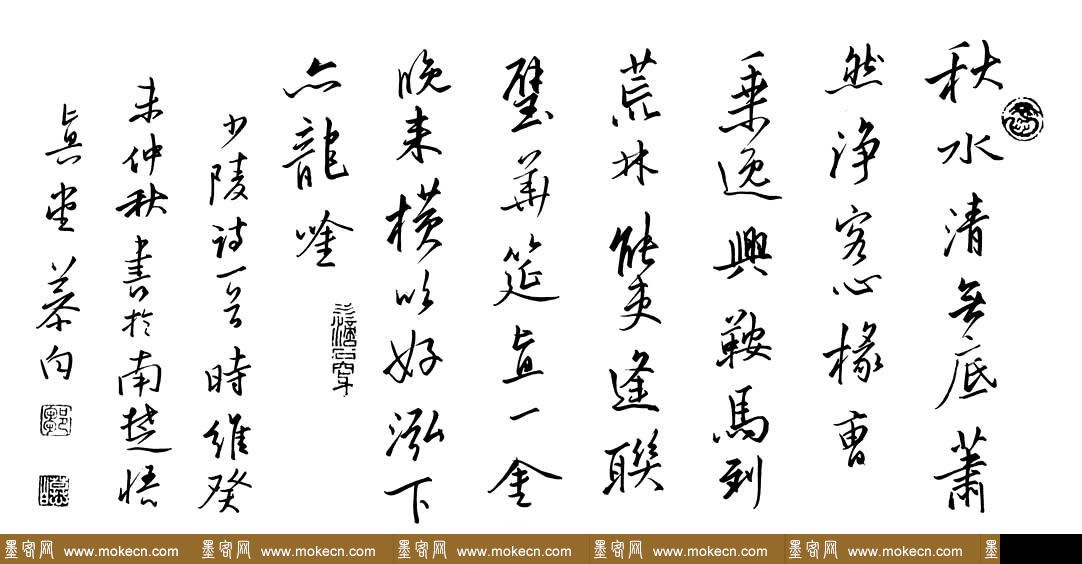 秋水清無底蕭
然浄客心椽曹
乗逸興鞍馬到
荒林能吏逢聯
璧華筵直一金
晚来橫吹好泓下
亦龍唫
少陵詩一首時維癸
未仲秋書於南楚悟
真堂慕向
墨客网 www.mokecn.com 墨客网 www.mokecn.com 墨客网 www.mokecn.com 墨客网 www.mokecn.com 墨客网 www.mokecn.com 墨